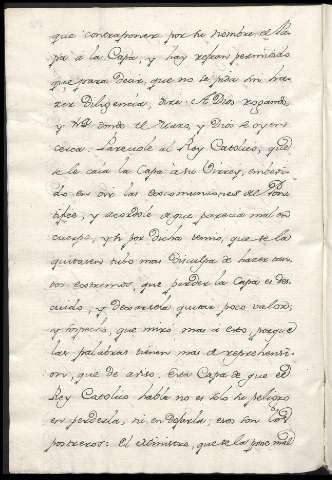 que contraponer por he nombre de Ca-
pa à la Capa, y hay refran permitido
que para decir, que no se pida sin ha-
zer diligencia, dize: A Dios rogando,
y con el Mazo, y Dios se oye
cerca: Parecele al Rey Catolico, que
se le caìa la Capa à su Virrey, embevi-
do en oir las excomuniones del Pon-
tifice, y acordóle de que parecia mal en
cuerpo, y si por dicha temió, que se la
quitasen tubo mas disculpa de hazer tan-
tos extremos, que perder la Capa es des-
cuido, y dexarsela quitar poco valor;
y sospecho, que miró mas à esto, porque
las palabras tienen mas de reprehensi-
on, que de aviso. Esta Capa de que el
Rey Catolico habla no es solo he peligro
en perderla, ni en dexarla; esos son los
postreros: El Ministro, que se la pone mal